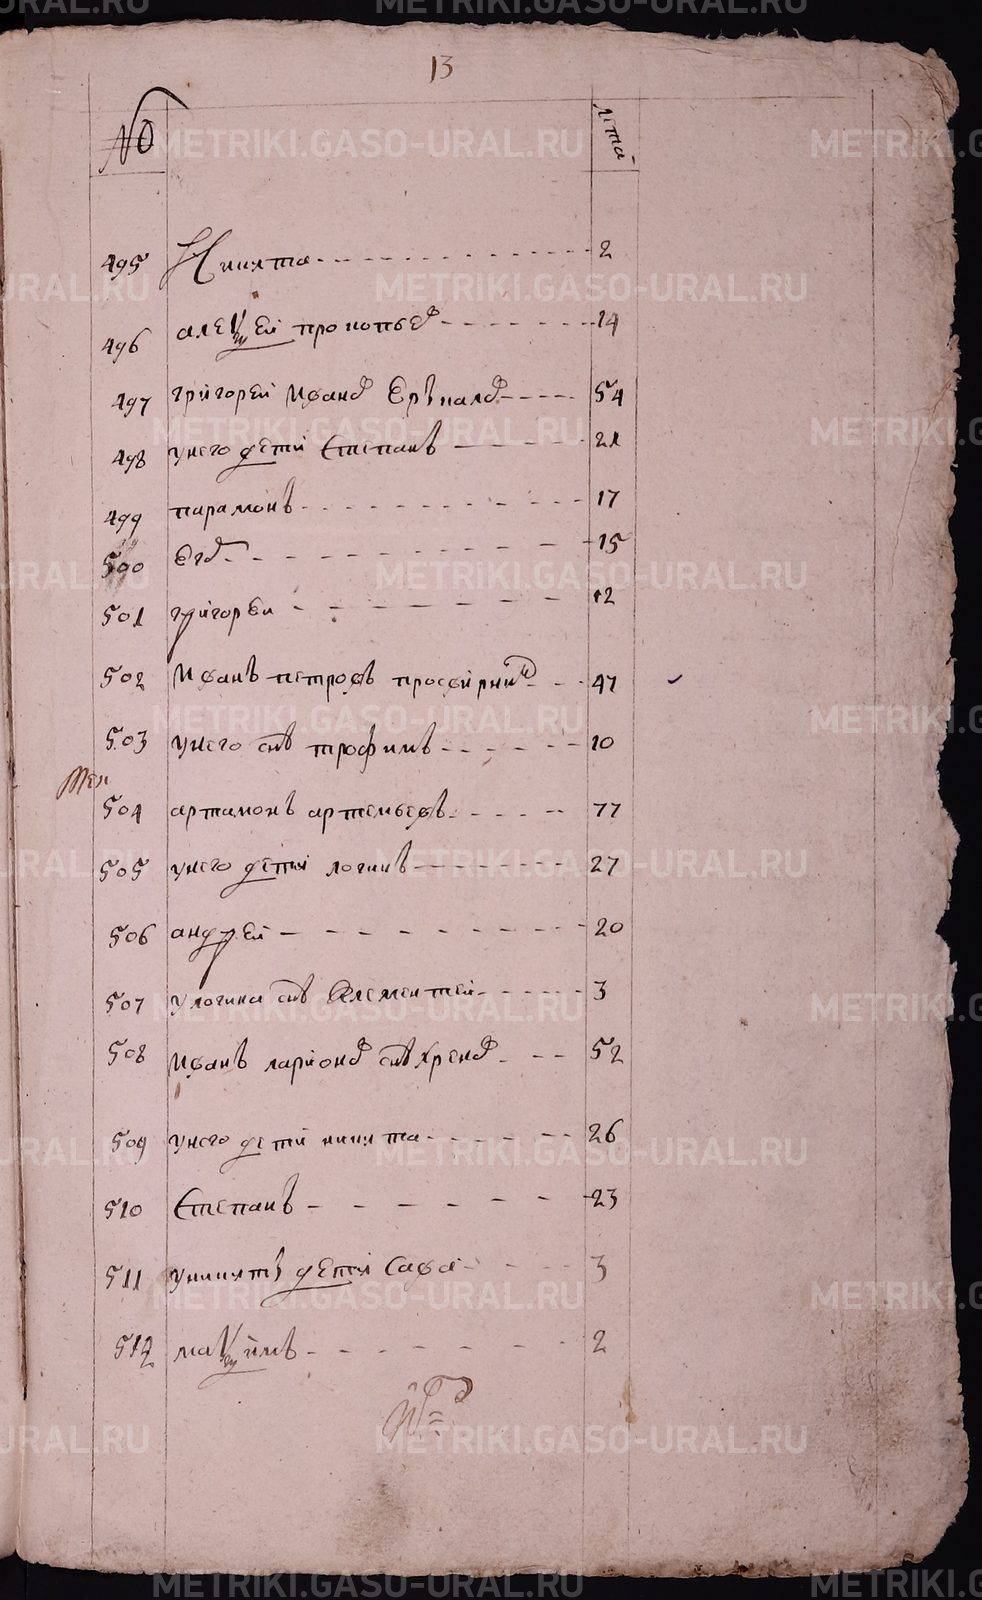 13
№ лѣта
495 Никита 2
496 алеѯей прокопьев 14
497 григорей Иванов 54
498 унего дети Степанъ 21
499 парамонъ 17
500 Егор 15
501 григореи 12
502 Иванъ петровъ просвирнин 47
503 унего снъ трофимъ 10
504 артамонъ артемьевъ 77
505 унего дети логинъ 27
506 андрей 20
507 улогина снъ Клементей 3
508 Иванъ ларионов снъ Хренов 52
509 унего дети никита 26
510 Степанъ 23
511 уникиты дети Сава 3
512 маѯимъ 2
METRIKI.GASO-URAL.RU